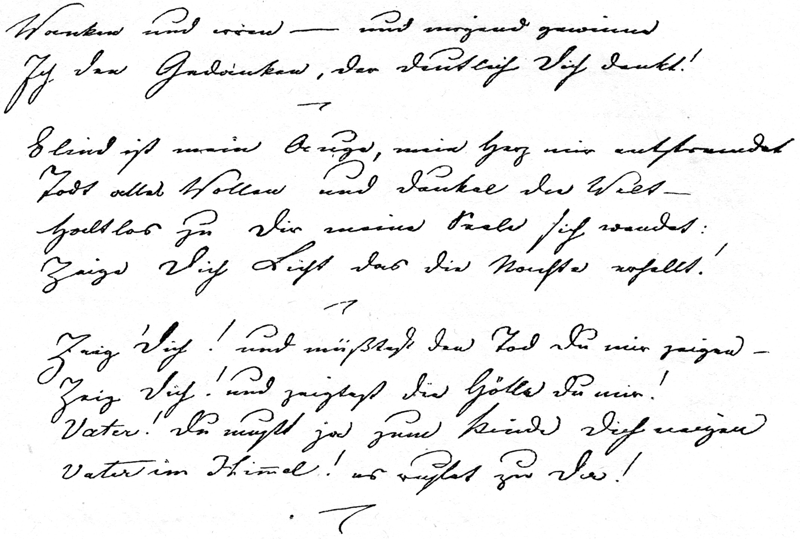 Wanken und irren — und nirgend gewinne
Ich den Gedanken, der deutlich Dich denkt!
Blind ist mein Auge, mein Herz mir entfremdet
Todt alles Wollen und dunkel die Welt —
Haltlos zu Dir meine Seele sich wendet:
Zeige Dich Licht das die Nächte erhellt!
Zeig Dich! und müßtest den Tod Du mir zeigen —
Zeig Dich! und zeigtest die Hölle Du mir!
Vater! Du mußt ja zum Kinde Dich neigen
Vater im Himmel! es ruft zu Dir!